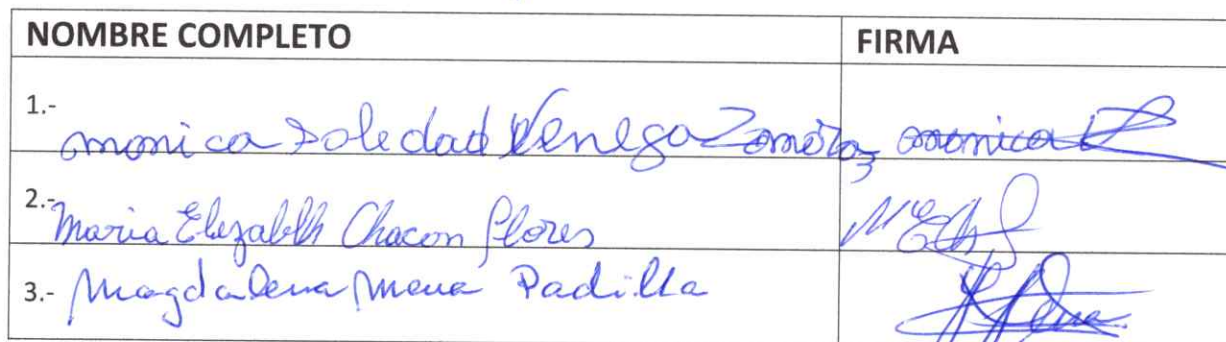 NOMBRE COMPLETO FIRMA
1.- monica Soledad Venega monica
2.- Maria Elizabeth Chacon flores
3.- Magdalena Mena Padilla